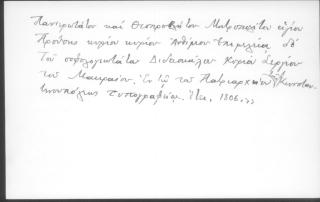 Πανιερωτάτου καὶ Θεοπροβλήτου Μητροπολίτου ἁγίου
Προύσης κυρίου κυρίου Ἀνθίμου Ἐπιμελείᾳ δὲ
Τοῦ σοφολογιωτάτου Διδασκάλου Κυρίου Σεργίου
τοῦ Μακραίου. Ἐν τῷ τοῦ Πατριαρχείου τῆς Κωνσταν-
τινουπόλεως Τυπογραφείῳ. Ἔτει, 1806.